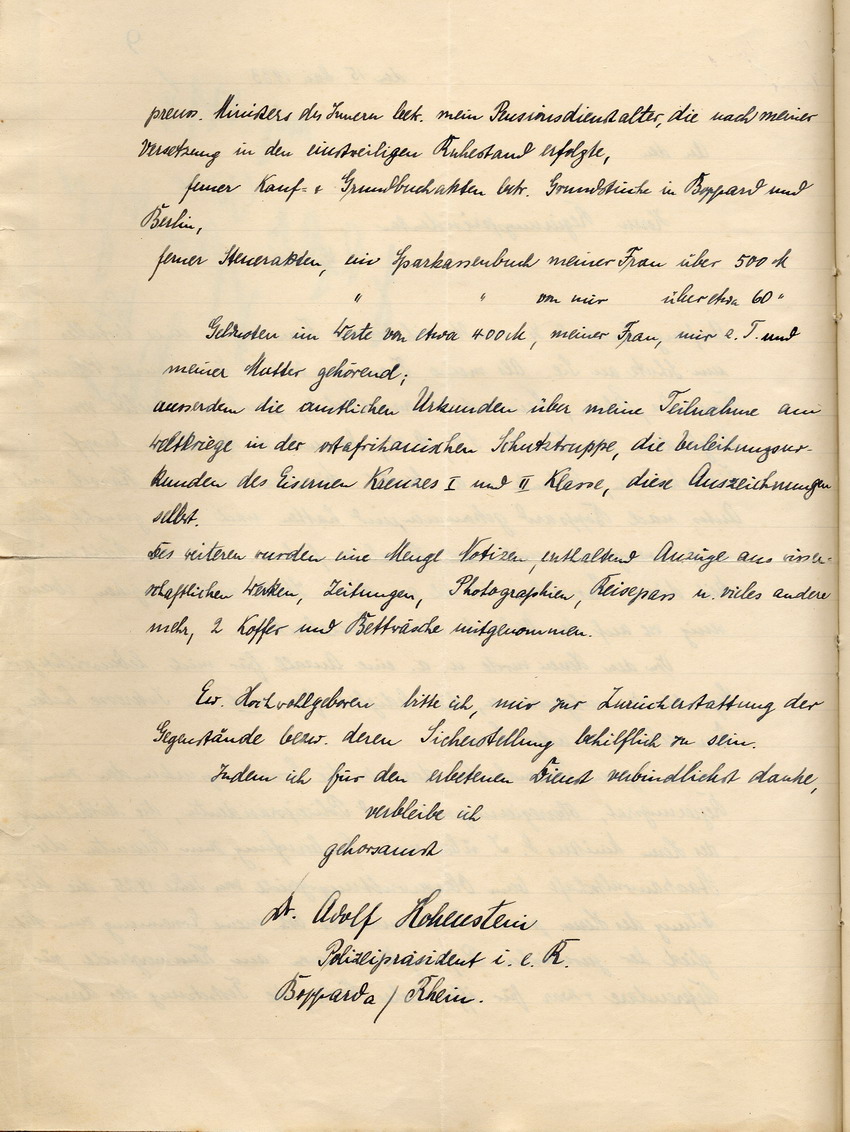 preuss. Ministers des Innern betr. mein Pensionsdienstalter, die nach meiner
Versetzung in den einstweiligen Ruhestand erfolgte,
ferner Kauf- & Grundbuchakten betr. Grundstücke in Boppard und
Berlin,
ferner Steuerakten, ein Sparkassenbuch meiner Frau über 500 M
" " von mir über etwa 60 "
Geldkosten im Werte von etwa 400 M, meiner Frau, mir z. T. und
meiner Mutter gehörend;
ausserdem die amtlichen Urkunden über meine Teilnahme am
Weltkriege in der ostafrikanischen Schutztruppe, die Verleihungsur-
kunden des Eisernen Kreuzes I und II Klasse, diese Auszeichnungen
selbst.
Des weiteren wurden eine Menge Notizen, enthaltend Auszüge aus wissen-
schaftlichen Werken, Zeitungen, Photographien, Reisepass u. vieles andere
mehr, 2 Koffer und Bettwäsche mitgenommen.
Ew. Hochwohlgeboren bitte ich, mir zur Zurückerstattung der
Gegenstände bezw. deren Sicherstellung behilflich zu sein.
Indem ich für den erbetenen Dienst verbindlichst danke,
verbleibe ich
gehorsamst
Dr. Adolf Hohenstein
Polizeipräsident i. e. R.
Boppard a / Rhein.